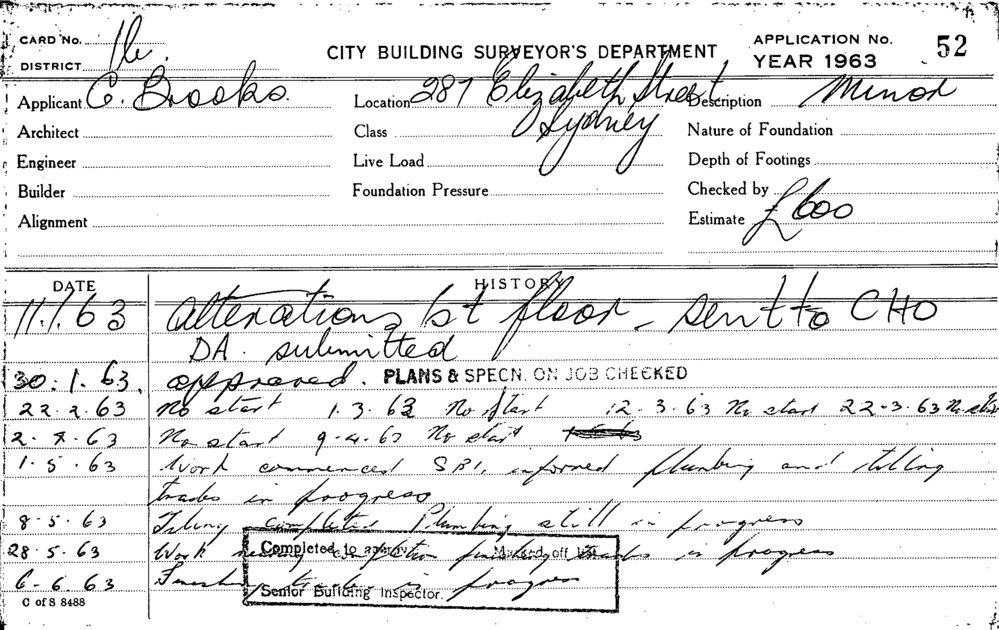 CARD No. 16.
DISTRICT
CITY BUILDING SURVEYOR'S DEPARTMENT
APPLICATION No. 52
YEAR 1963
Applicant C. Brooks.
Location 287 Elizabeth Street
Sydney
Description Minor
Architect
Class
Nature of Foundation
Engineer
Live Load
Depth of Footings
Builder
Foundation Pressure
Checked by
Alignment
Estimate £600
DATE HISTORY
11.1.63 Alterations 1st floor - sent to CHO
DA. submitted
30.1.63. approved. PLANS & SPECN. ON JOB CHECKED
22.2.63 No start 1.3.63 No start 12.3.63 No start 22.3.63 No start
2.4.63 No start 9.4.63 No start
1.5.63 Work commenced SBI. informed plumbing and tiling
trades in progress
8.5.63 Tiling completed Plumbing still in progress
28.5.63 Work completion finishing trades in progress
6.6.63 Finishing trades in progress
Completed to approv. Marked off list
Senior Building Inspector.
C of S 8488